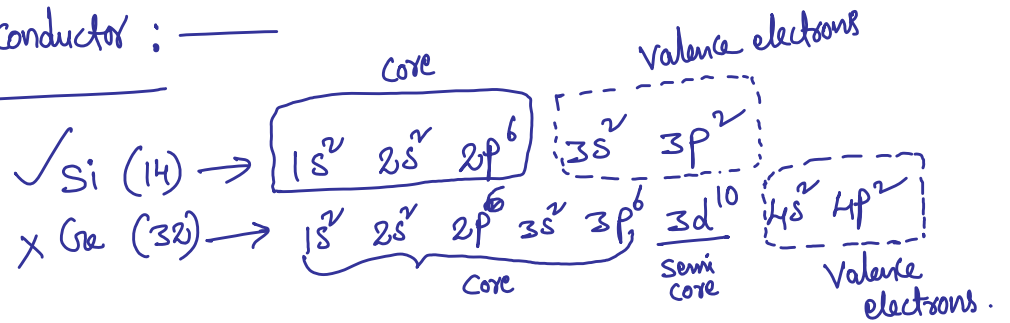 Conductor : —
Core
Valence electrons
✓ Si (14) → 1s² 2s² 2p⁶ 3s² 3p²
x Ge (32) → 1s² 2s² 2p⁶ 3s² 3p⁶, 3d¹⁰ 4s² 4p²
Core
Semi core
Valence electrons.